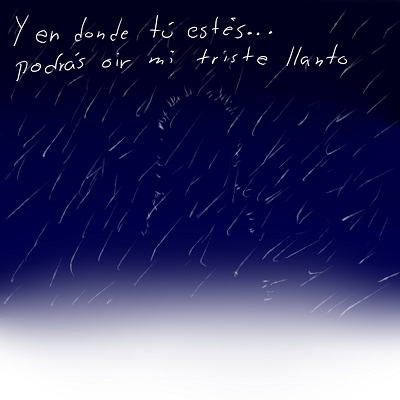 Y en donde tú estés...
podrás oir mi triste llanto